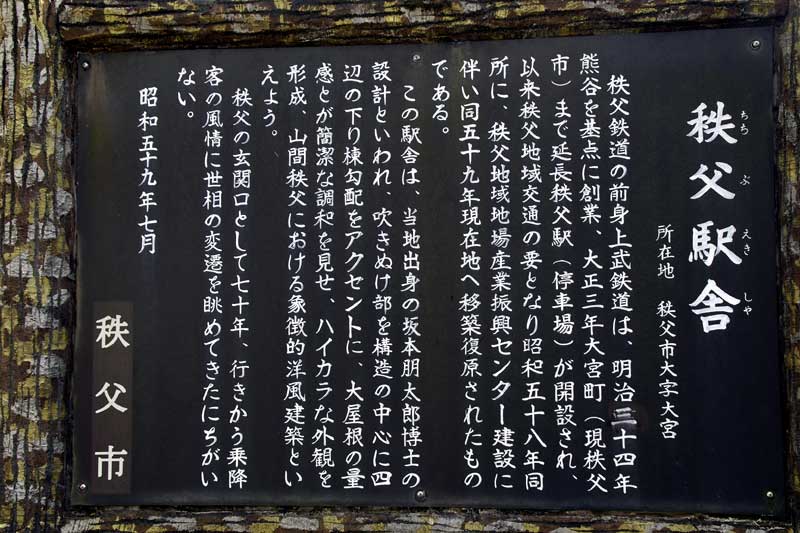 秩父駅舎
ちちぶえきしゃ
所在地 秩父市大字大宮
秩父鉄道の前身上武鉄道は、明治三十四年
熊谷を基点に創業、大正三年大宮町（現秩父
市）まで延長秩父駅（停車場）が開設され、
以来秩父地域交通の要となり昭和五十八年同
所に、秩父地域地場産業振興センター建設に
伴い同五十九年現在地へ移築復原されたもの
である。
この駅舎は、当地出身の坂本朋太郎博士の
設計といわれ、吹きぬけ部を構造の中心に四
辺の下り棟勾配をアクセントに、大屋根の量
感とが簡潔な調和を見せ、ハイカラな外観を
形成、山間秩父における象徴的洋風建築とい
えよう。
秩父の玄関口として七十年、行きかう乗降
客の風情に世相の変遷を眺めてきたにちがい
ない。
昭和五十九年七月
秩父市